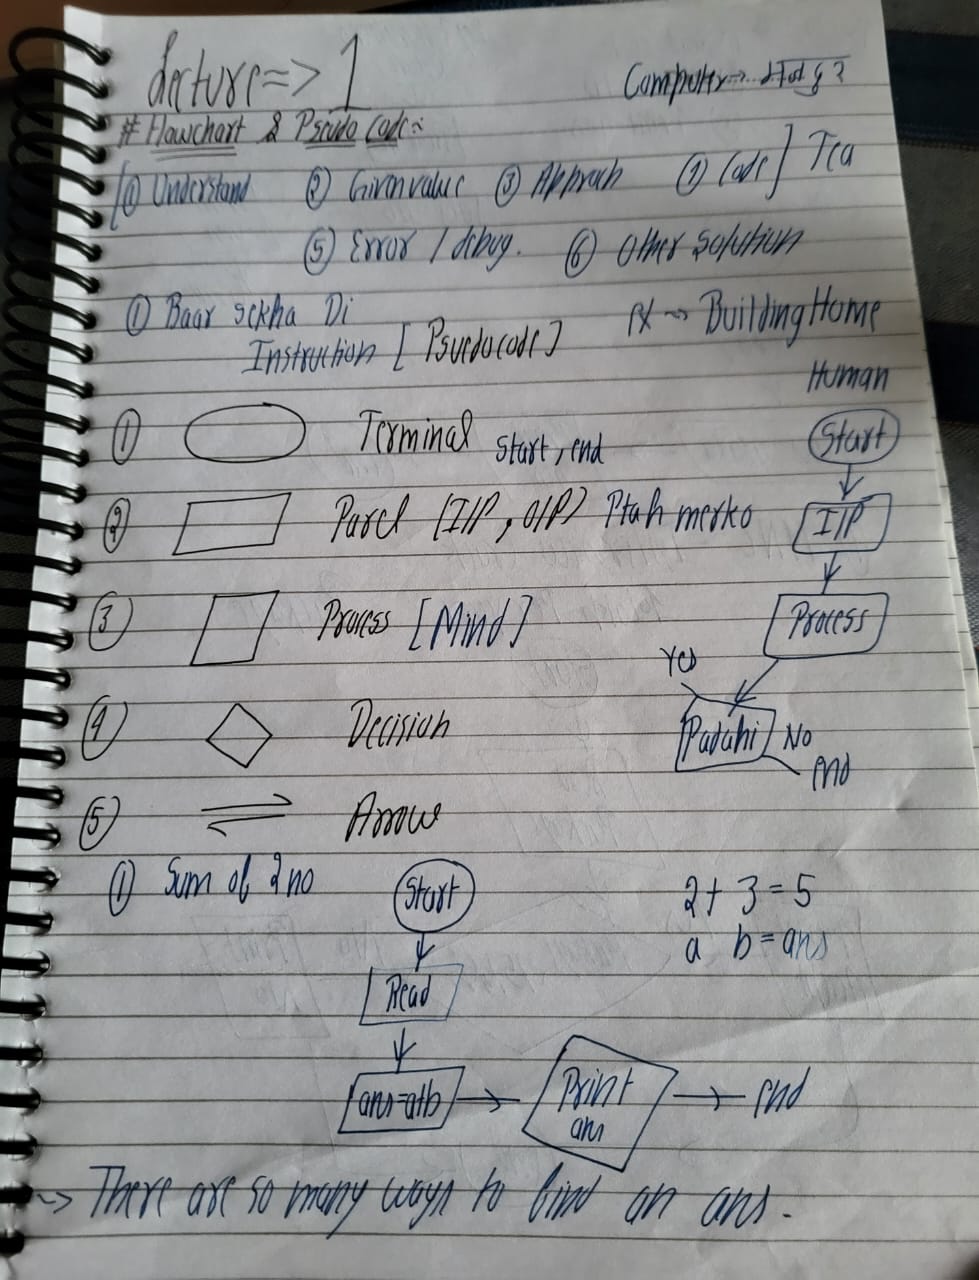 Lecture => 1
Computer →
# Flowchart & Pseudo Code :
[① Understand ② Given value ③ Approach ④ Code] Tea
⑤ Error / debug. ⑥ Other Solution
① Baar sekha Di
Instruction [Psuedocode]
→ Building Home
Human
① Terminal Start, end
② (I/P, O/P)
③ Process [Mind]
④ Decision
⑤ Arrow
Start
I/P
Process
Yes
Padahi No
end
① Sum of 2 no
Start
Read
ans=a+b
Print
ans
end
2 + 3 = 5
a b = ans
→ There are so many ways to find an ans.